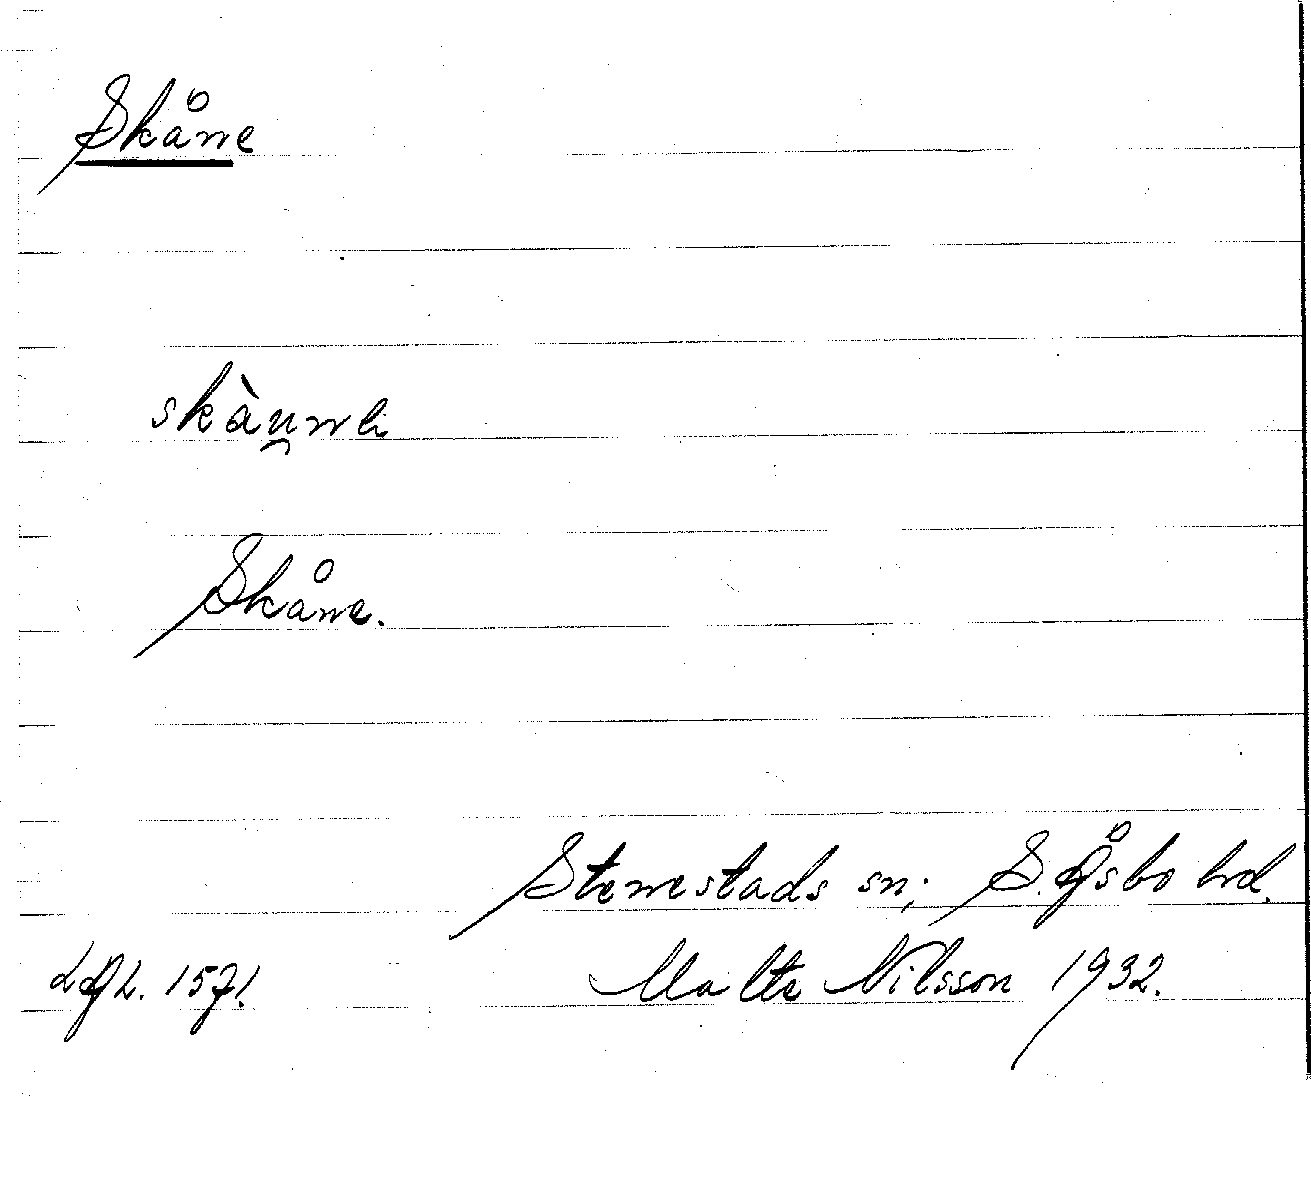 Skåne
skàu̯nə
Skåne.
Stenestads sn; S. Åsbo hd.
LAL. 1571.
Malte Nilsson 1932.